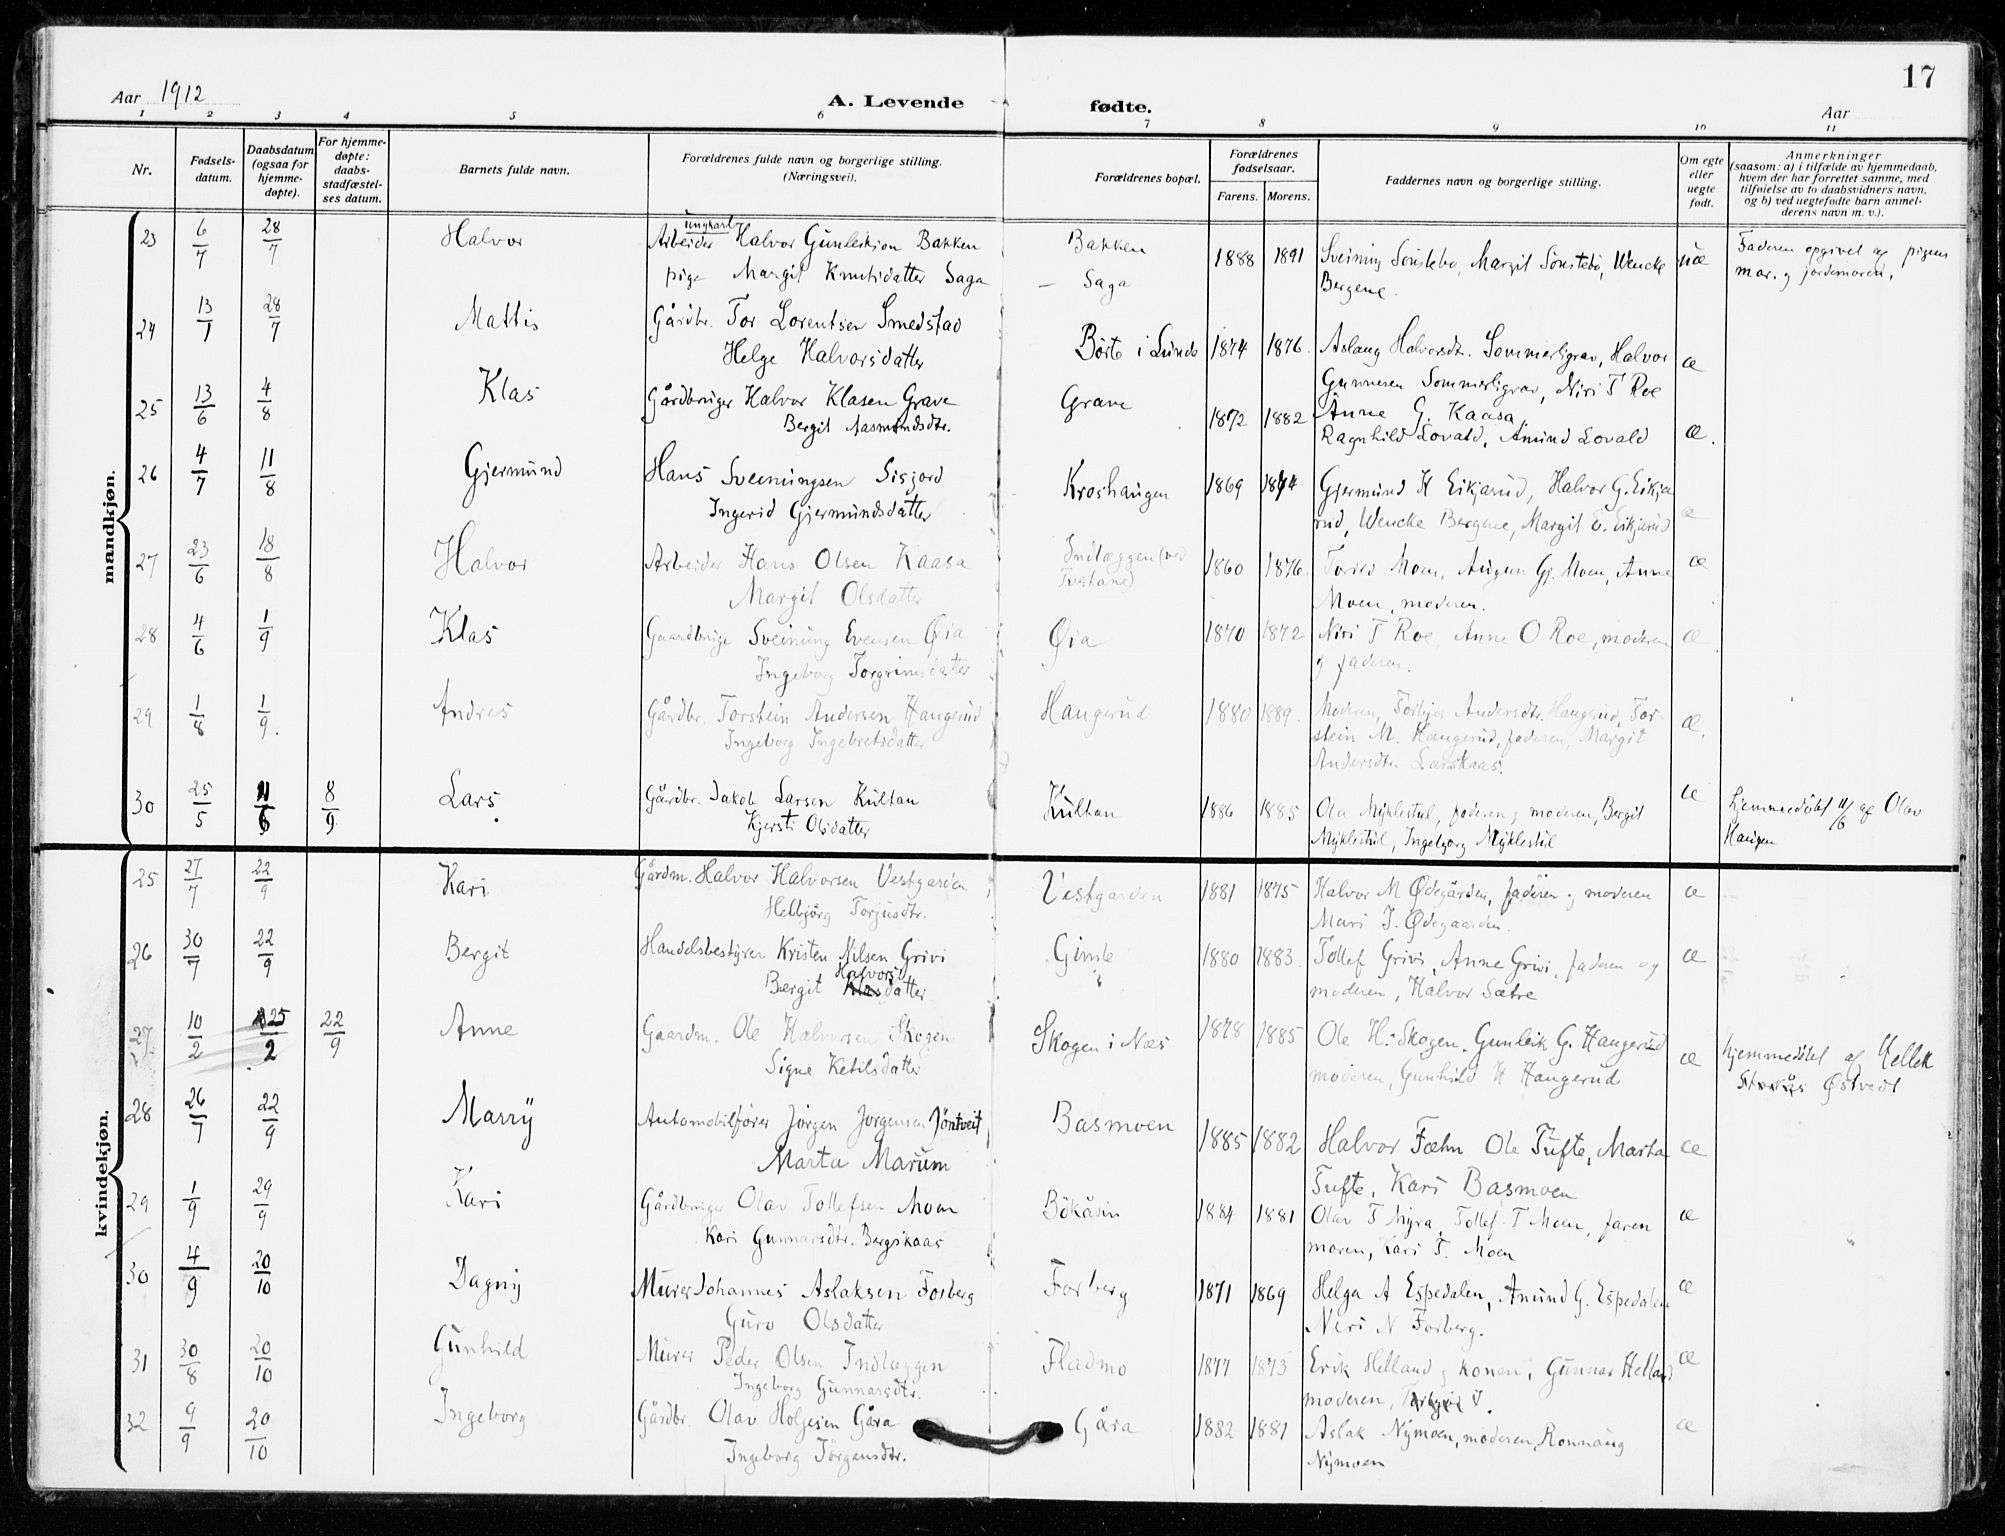 17
Aar 1912
A. Levende fødte.
Aar
1 2 3 4 5 6 7 8 9 10 11
Nr.
Fødselsdatum.
Daabsdatum (ogsaa for hjemmedøpte).
For hjemmedøpte: daabsstadfæstelses datum.
Barnets fulde navn.
Forældrenes fulde navn og borgerlige stilling. (Næringsvei).
Forældrenes bopæl.
Forældrenes fødselsaar.
Farens. Morens.
Faddernes navn og borgerlige stilling.
Om egte eller uegte født.
Anmerkninger (saasom: a) i tilfælde av hjemmedaab, hvem der har forrettet samme, med tilføielse av to daabsvidners navn, og b) ved uegtefødte barn anmelderens navn m. v.).
mandkjøn.
23 6/7 28/7 Halvor ungkarl Arbeider Halvor Gunleikson Bakken Bakken 1888 1891 Sveinung Sønstebø, Margit Sønstebø, Wencke uæ Faderen opgivet af pigens
pige Margit Knutsdatter Saga – Saga Bergene. mor. og jordemoren.
24 13/7 28/7 Mattis Gårdbr. Tor Lorentsen Smedstad
Helge Halvorsdatter Børte i Lunde 1874 1876. Aslaug Halvorsdtr. Sommerligrav, Halvor æ
Gunnesen Sommerligrav, Niri T Roe
25 13/6 4/8 Klas Gårdbruger Halvor Klasen Grave Grave 1872 1882 Anne G. Kaasa,
Bergit Aasmundsdtr. Ragnhild Lovald, Amund Lovald æ.
26 4/7 11/8 Gjermund Hans Sveinungsen Sisjord Kroshaugen 1869 1874 Gjermund H Eikjarud, Halvor G. Eikja
Ingerid Gjermundsdatter rud, Wencke Bergene, Margit E. Eikjarud æ
27 23/6 18/8 Halvor Arbeider Hans Olsen Kaasa Indlæggen (ved 1860 1876. Moen, Augun Gj. Moen, Anne æ
Margit Olsdatter Moen, moderen.
28 4/6 1/9 Klas Gaardbruge Sveinung Evensen Øia Øia 1870 1872 Niri T Roe, Anne O Roe, moderen æ
Ingeborg Torgrimsdatter og faderen.
29 1/8 1/9. Andres Gårdbr. Torstein Andersen Haugerud Haugerud 1880 1889. Moderen, Torbjør Andersdtr. Haugerud, Tor- æ.
Ingeborg Ingebretsdatter stein M. Haugerud, faderen, Margit
Andersdtr Larskaas.
30 25/5 11/6 8/9 Lars Gårdbr. Jakob Larsen Kultan Kultan 1886 1885 Ola Myklestul, faderen og moderen, Bergit æ hjemmedøbt 11/6 af Olav
Kjersti Olsdatter Myklestul, Ingebjørg Myklestul Haugen
kvindekjøn.
25 27/7 22/9 Kari Gårdm. Halvor Halvorsen Vestgarden Vestgarden 1881 1875 Halvor M Ødegården, faderen og moderen æ
Helbjørg Torjusdtr. Mari J. Ødegaarden.
26 30/7 22/9 Bergit Handelsbestyrer Kristen Nilsen Grivi Gimle 1880 1883. Tollef Grivi, Anne Grivi, faderen og æ
Bergit Klas Halvorsdatter " moderen, Halvor Sætre
27. 10/2 25/2 22/9 Anne Gaardm. Ole Halvorsen Skogen Skogen i Næs 1878 1885 Ole H. Skogen, Gunleik G. Haugerud æ hjemmedøbt af Hellek
Signe Ketilsdatter moderen, Gunhild H Haugerud Østvedt
28 26/7 22/9 Marry Automobilfører Jørgen Jørgensen Jøntveit Basmoen 1885 1882 Halvor Fæhn Ole Tufte, Marta æ
Marta Marum Tufte, Kari Basmoen
29 1/9 29/9 Kari Gårdbruger Olav Tollefsen Moen Bökåsin 1884 1881 Olav T Myra, Tollef T Moen, faren æ
Kari Gunnarsdtr. Bergskaas moren, Kari T. Moen
30 4/9 20/10 Dagny Murer Johannes Aslaksen Forberg Forberg 1871 1869 Helga A Espedalen, Amund G. Espedalen æ
Guro Olsdatter Niri N Forberg.
31 30/8 20/10 Gunhild Murer Peder Olsen Indlæggen Fladmo 1877 1873 Erik Helland og konen, Gunnar Helland æ
Ingeborg Gunnarsdtr. moderen,
32 9/9 20/10 Ingeborg Gårdbr. Olav Holgesen Gåra Gåra 1882 1881 Aslak Nymoen, moderen, Rønnaug æ
Ingeborg Jørgensdtr. Nymoen